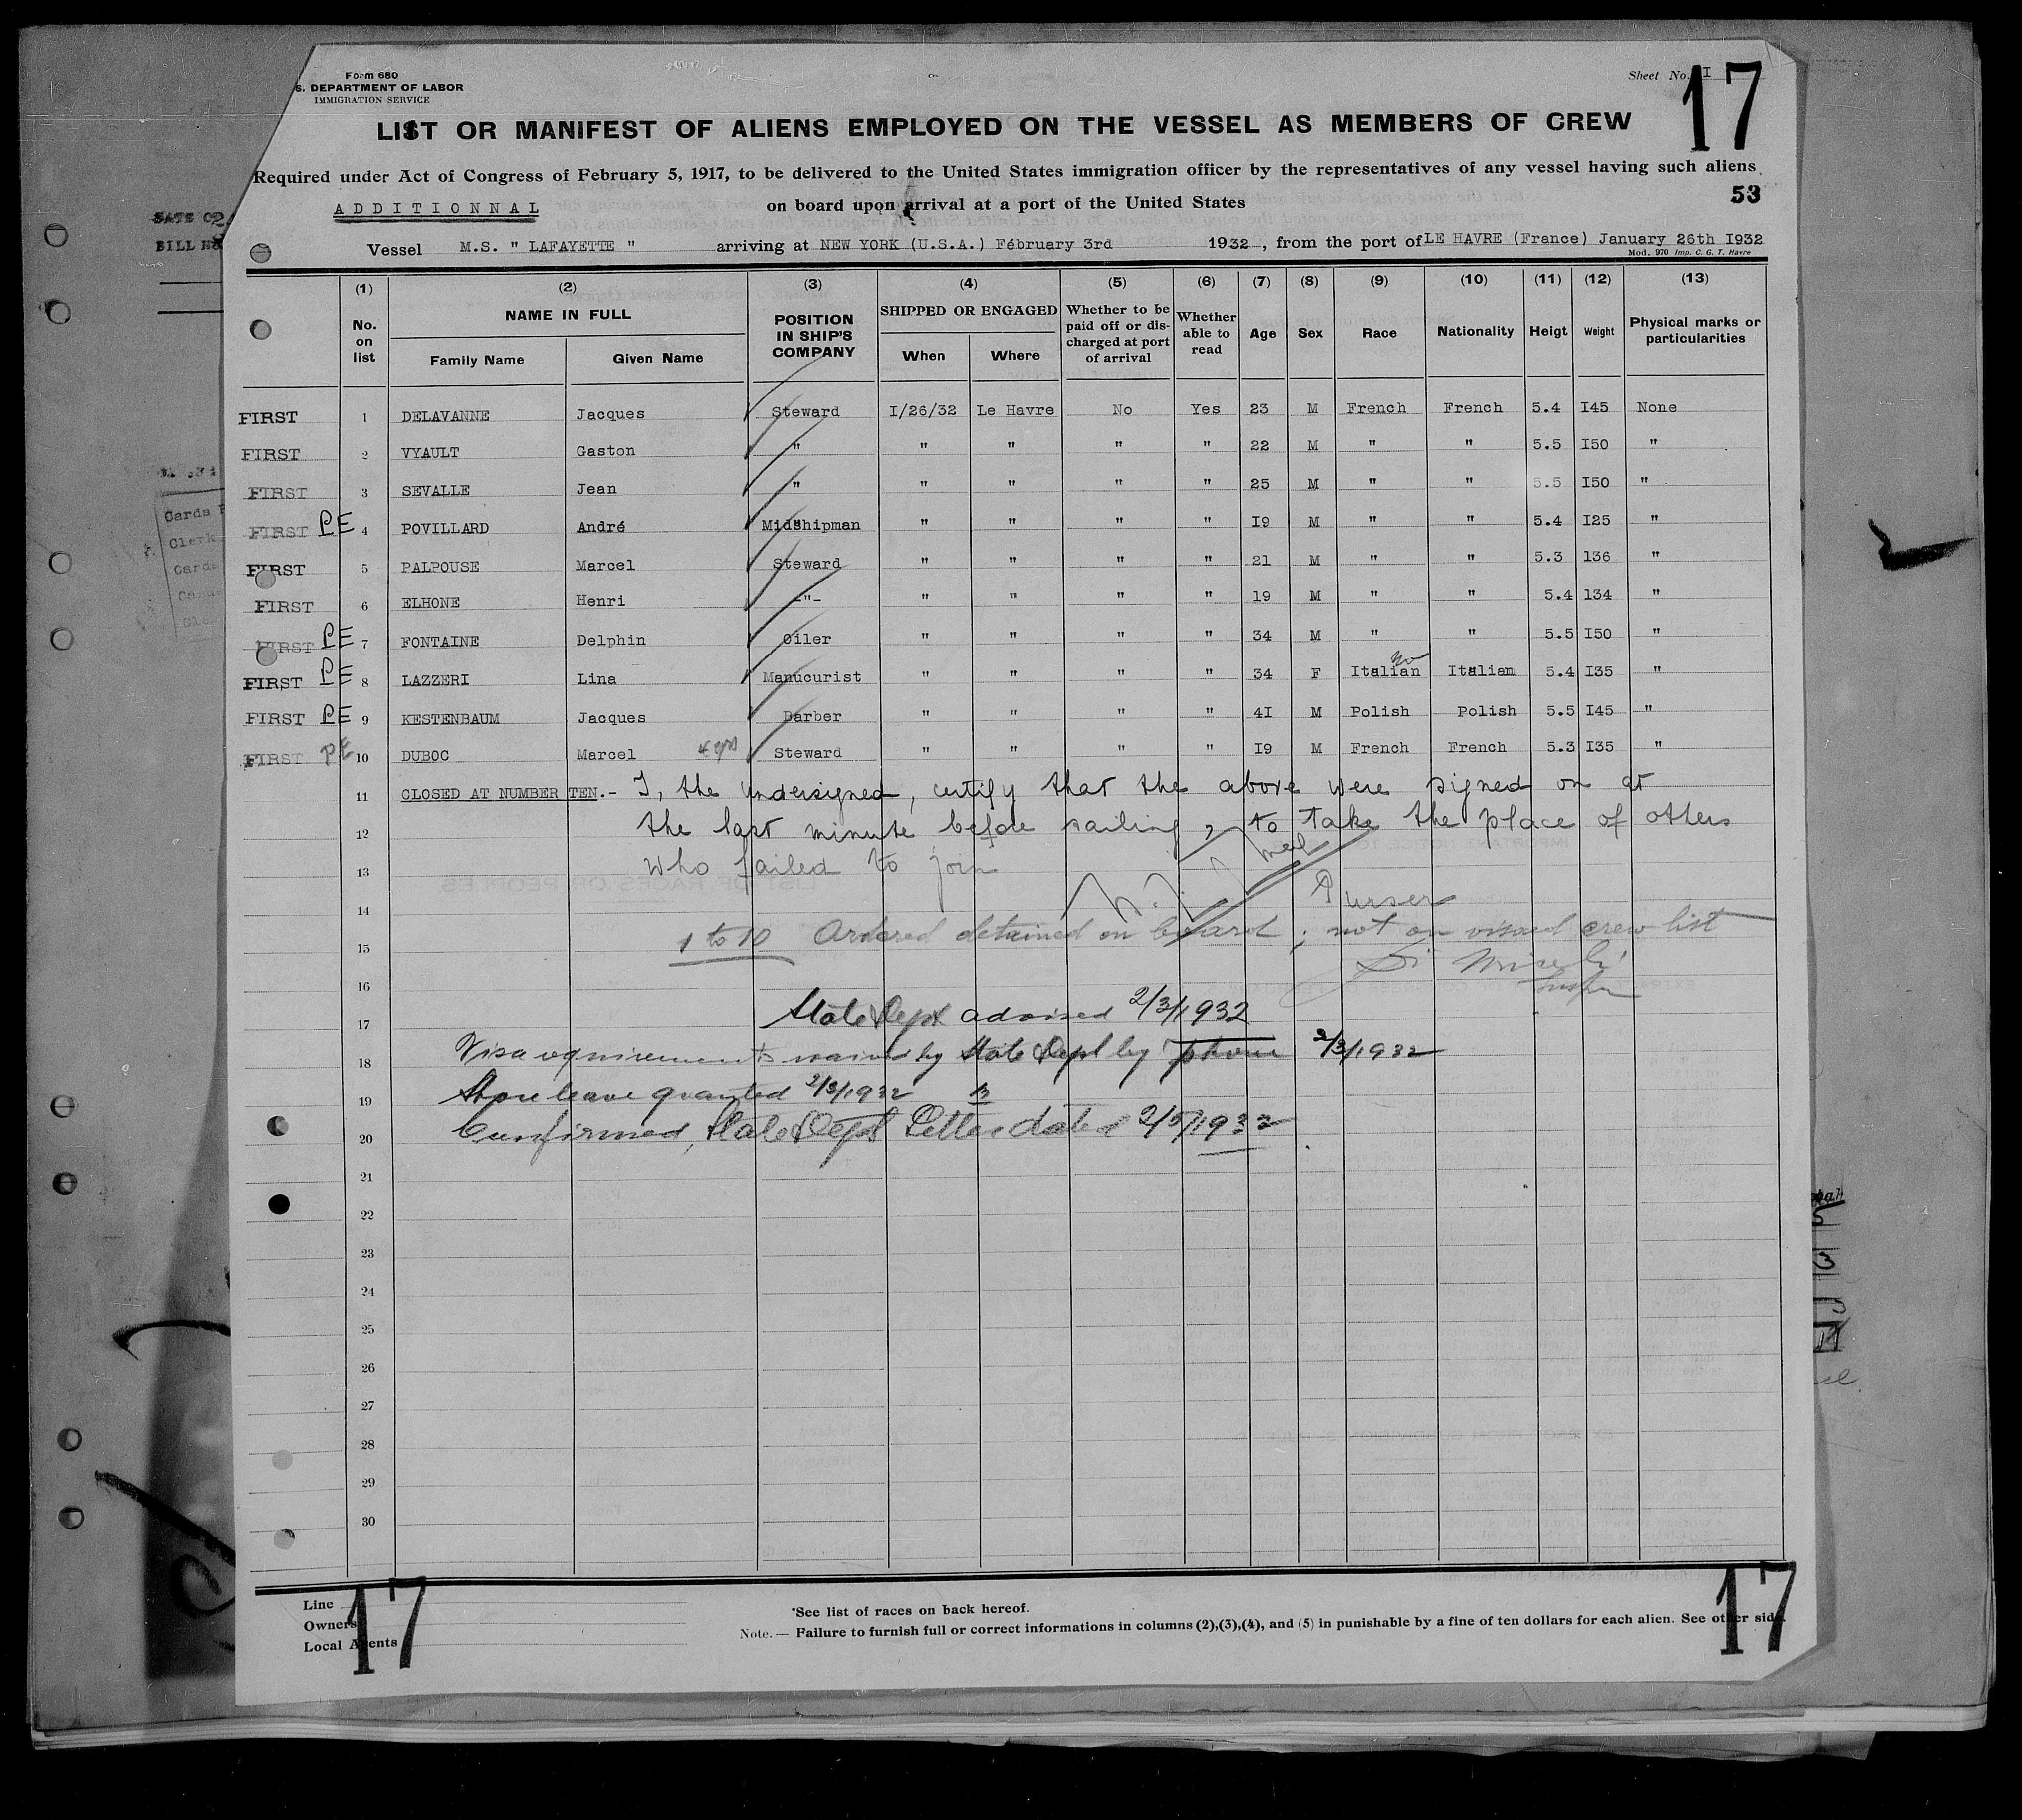 Form 680
S. DEPARTMENT OF LABOR
IMMIGRATION SERVICE
Sheet No. I
17
LIST OR MANIFEST OF ALIENS EMPLOYED ON THE VESSEL AS MEMBERS OF CREW
Required under Act of Congress of February 5, 1917, to be delivered to the United States immigration officer by the representatives of any vessel having such aliens
on board upon arrival at a port of the United States
53
ADDITIONNAL
Vessel M.S. " LAFAYETTE " arriving at NEW YORK (U.S.A.) February 3rd 1932 , from the port of LE HAVRE (France) January 26th I932
Mod. 970 Imp. C. G. T. Havre
(1) (2) (3) (4) (5) (6) (7) (8) (9) (10) (11) (12) (13)
No. on list NAME IN FULL Family Name Given Name POSITION IN SHIP'S COMPANY SHIPPED OR ENGAGED When Where Whether to be paid off or discharged at port of arrival Whether able to read Age Sex Race Nationality Heigt Weight Physical marks or particularities
FIRST 1 DELAVANNE Jacques Steward I/26/32 Le Havre No Yes 23 M French French 5.4 I45 None
FIRST 2 VYAULT Gaston " " " " " 22 M " " 5.5 I50 "
FIRST 3 SEVALLE Jean " " " " " 25 M " " 5.5 I50 "
FIRST PE 4 POVILLARD André Midshipman " " " " I9 M " " 5.4 I25 "
FIRST 5 PALPOUSE Marcel Steward " " " " 21 M " " 5.3 136 "
FIRST 6 ELHONE Henri -"- " " " " 19 M " " 5.4 134 "
FIRST PE 7 FONTAINE Delphin Oiler " " " " 34 M " " 5.5 I50 "
FIRST PE 8 LAZZERI Lina Manucurist " " " " 34 F Italian no Italian 5.4 I35 "
FIRST PE 9 KESTENBAUM Jacques Barber " " " " 4I M Polish Polish 5.5 I45 "
FIRST PE 10 DUBOC Marcel Steward " " " " I9 M French French 5.3 I35 "
11 CLOSED AT NUMBER TEN.- I, the undersigned, certify that the above were signed on at
12 the last minute before sailing, to take the place of others
13 who failed to join
14 Purser
15 1 to 10 Ordered detained on board ; not on visaed crew list
16
17 State Dept advised 2/3/1932
18 Visa requirements waived by State Dept by phone 2/3/1932
19 Shore leave granted 2/3/1932
20 Confirmed, State Dept Letter dated 2/5/1932
21
22
23
24
25
26
27
28
29
30
Line
Owners
Local Agents
17
*See list of races on back hereof.
Note. — Failure to furnish full or correct informations in columns (2),(3),(4), and (5) in punishable by a fine of ten dollars for each alien. See other side.
17